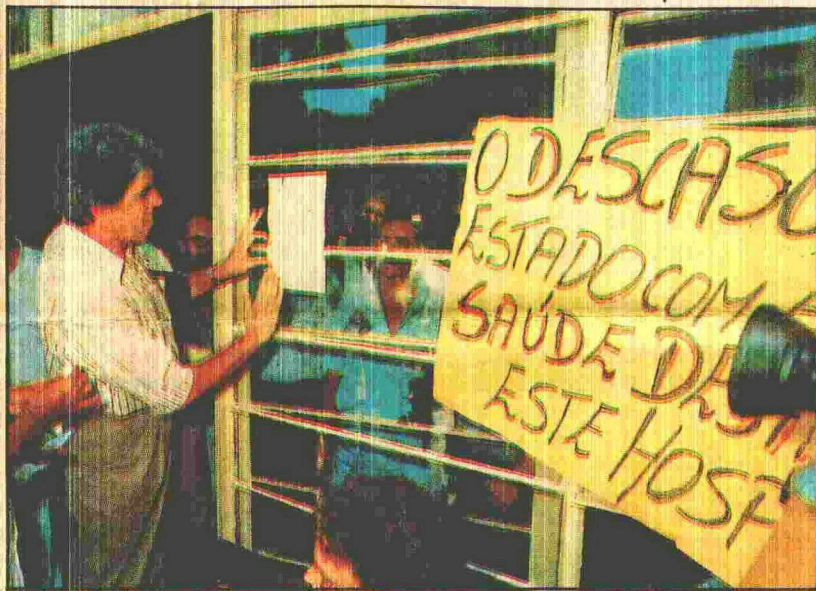 O DESCASO
ESTADO COM A
SAÚDE DES
ESTE HOSP